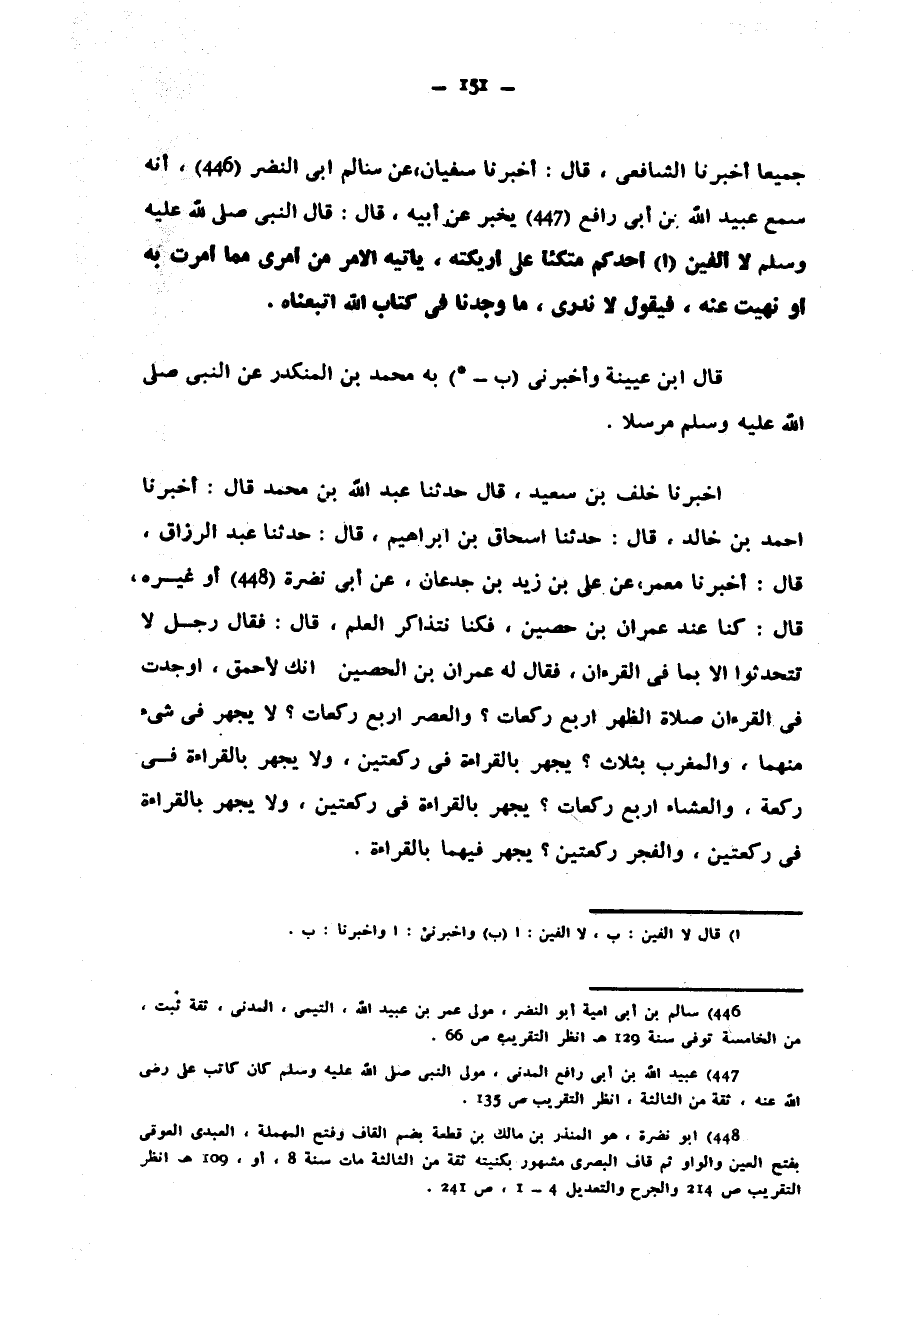 — 151 —
جميعا أخبرنا الشافعى ، قال : أخبرنا سفيان،عن سالم ابى النضر (446) ، أنه
سمع عبيد الله بن أبى رافع (447) يخبر عن أبيه ، قال : قال النبى صلى الله عليه
وسلم لا ألفين (ا) احدكم متكئا على اريكته ، ياتيه الامر من امرى مما امرت به
او نهيت عنه ، فيقول لا ندرى ، ما وجدنا فى كتاب الله اتبعناه .
قال ابن عيينة وأخبرنى (ب — *) به محمد بن المنكدر عن النبى صلى
الله عليه وسلم مرسلا .
اخبرنا خلف بن سعيد ، قال حدثنا عبد الله بن محمد قال : أخبرنا
احمد بن خالد ، قال : حدثنا اسحاق بن ابراهيم ، قال : حدثنا عبد الرزاق ،
قال : أخبرنا معمر،عن على بن زيد بن جدعان ، عن أبى نضرة (448) أو غيــره،
قال : كنا عند عمران بن حصين ، فكنا نتذاكر العلم ، قال : فقال رجــل لا
تتحدثوا الا بما فى القرءان ، فقال له عمران بن الحصين انك لأحمق ، اوجدت
فى القرءان صلاة الظهر اربع ركعات ؟ والعصر اربع ركعات ؟ لا يجهر فى شىء
منهما ، والمغرب بثلاث ؟ يجهر بالقراءة فى ركعتين ، ولا يجهر بالقراءة فــى
ركعة ، والعشاء اربع ركعات ؟ يجهر بالقراءة فى ركعتين ، ولا يجهر بالقراءة
فى ركعتين ، والفجر ركعتين ؟ يجهر فيهما بالقراءة .
ا) قال لا الفين : ب ، لا الفين : ا (ب) واخبرنى : ا واخبرنا : ب .
446) سالم بن أبى امية أبو النضر ، مولى عمر بن عبيد الله ، التيمى ، المدنى ، ثقة ثبت ،
من الخامسة توفى سنة 129 هـ انظر التقريب ص 66 .
447) عبيد الله بن أبى رافع المدنى ، مولى النبى صلى الله عليه وسلم كان كاتب على رضى
الله عنه ، ثقة من الثالثة ، انظر التقريب ص 135 .
448) ابو نضرة ، هو المنذر بن مالك بن قطعة بضم القاف وفتح المهملة ، العبدى العوقى
بفتح العين والواو ثم قاف البصرى مشهور بكنيته ثقة من الثالثة مات سنة 8 ، أو ، 109 هـ انظر
التقريب ص 214 والجرح والتعديل 4 – 1 ، ص 241 .